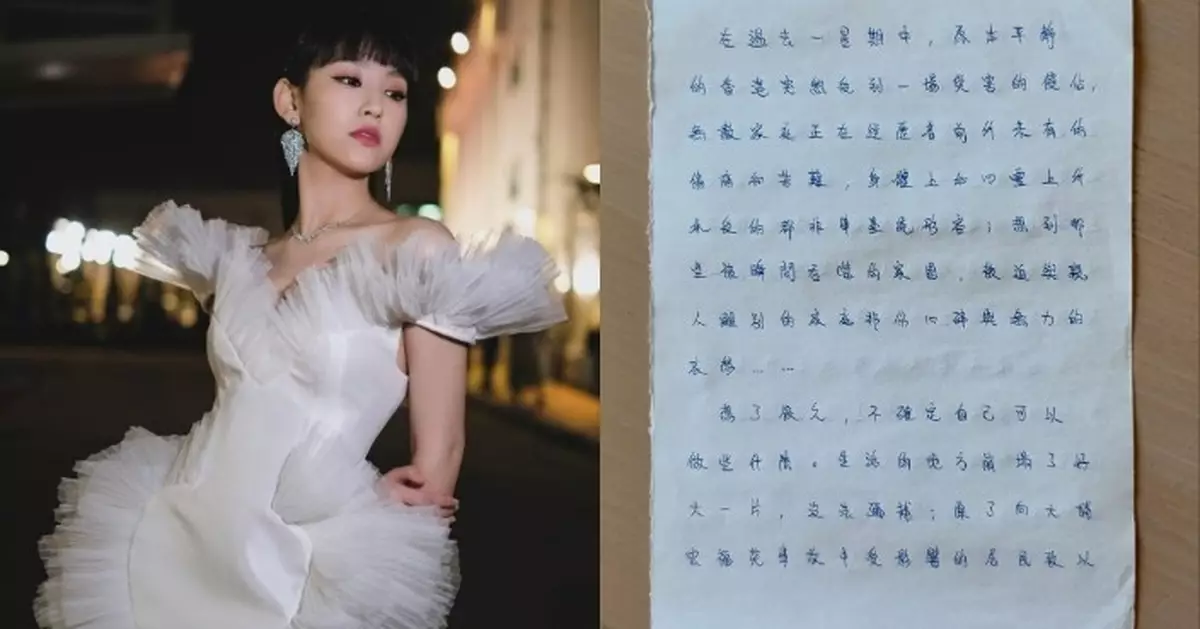 在過去一星期中，原本平靜
的香港突然受到一場災害的侵佔，
無數家庭正在經歷着前所未有的
傷痛和苦難，身體上和心靈上所
承受的都非筆墨能形容；想到那
些被瞬間吞噬的家園，被迫與親
人離別的家庭那份心碎與無力的
衣想……
想了很久，不確定自己可以
做些什麼。生活的地方崩塌了好
大一片，沒法彌補；除了向大埔
宏福苑事故中受影響的居民致以